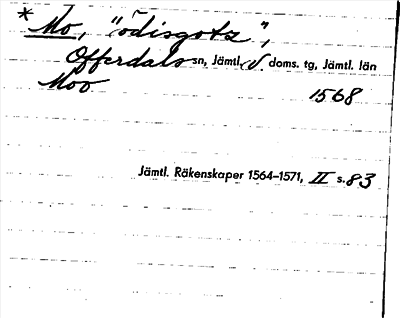 * Mo, "ödisgotz",
Offerdals sn, Jämtl. v. doms. tg, Jämtl. län
Moo 1568
Jämtl. Räkenskaper 1564–1571, II s. 83